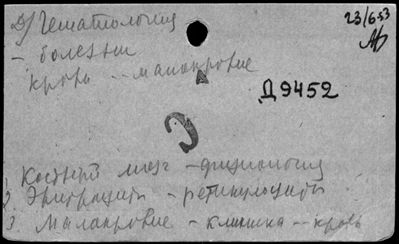 Д/ Гематология
23/6 53
- болезни
крови -- малокровие
Д9452
1 Костный мозг - физиология
2 Эритроциты - ретикулоциты
3 Малокровие - клиника -- кровь